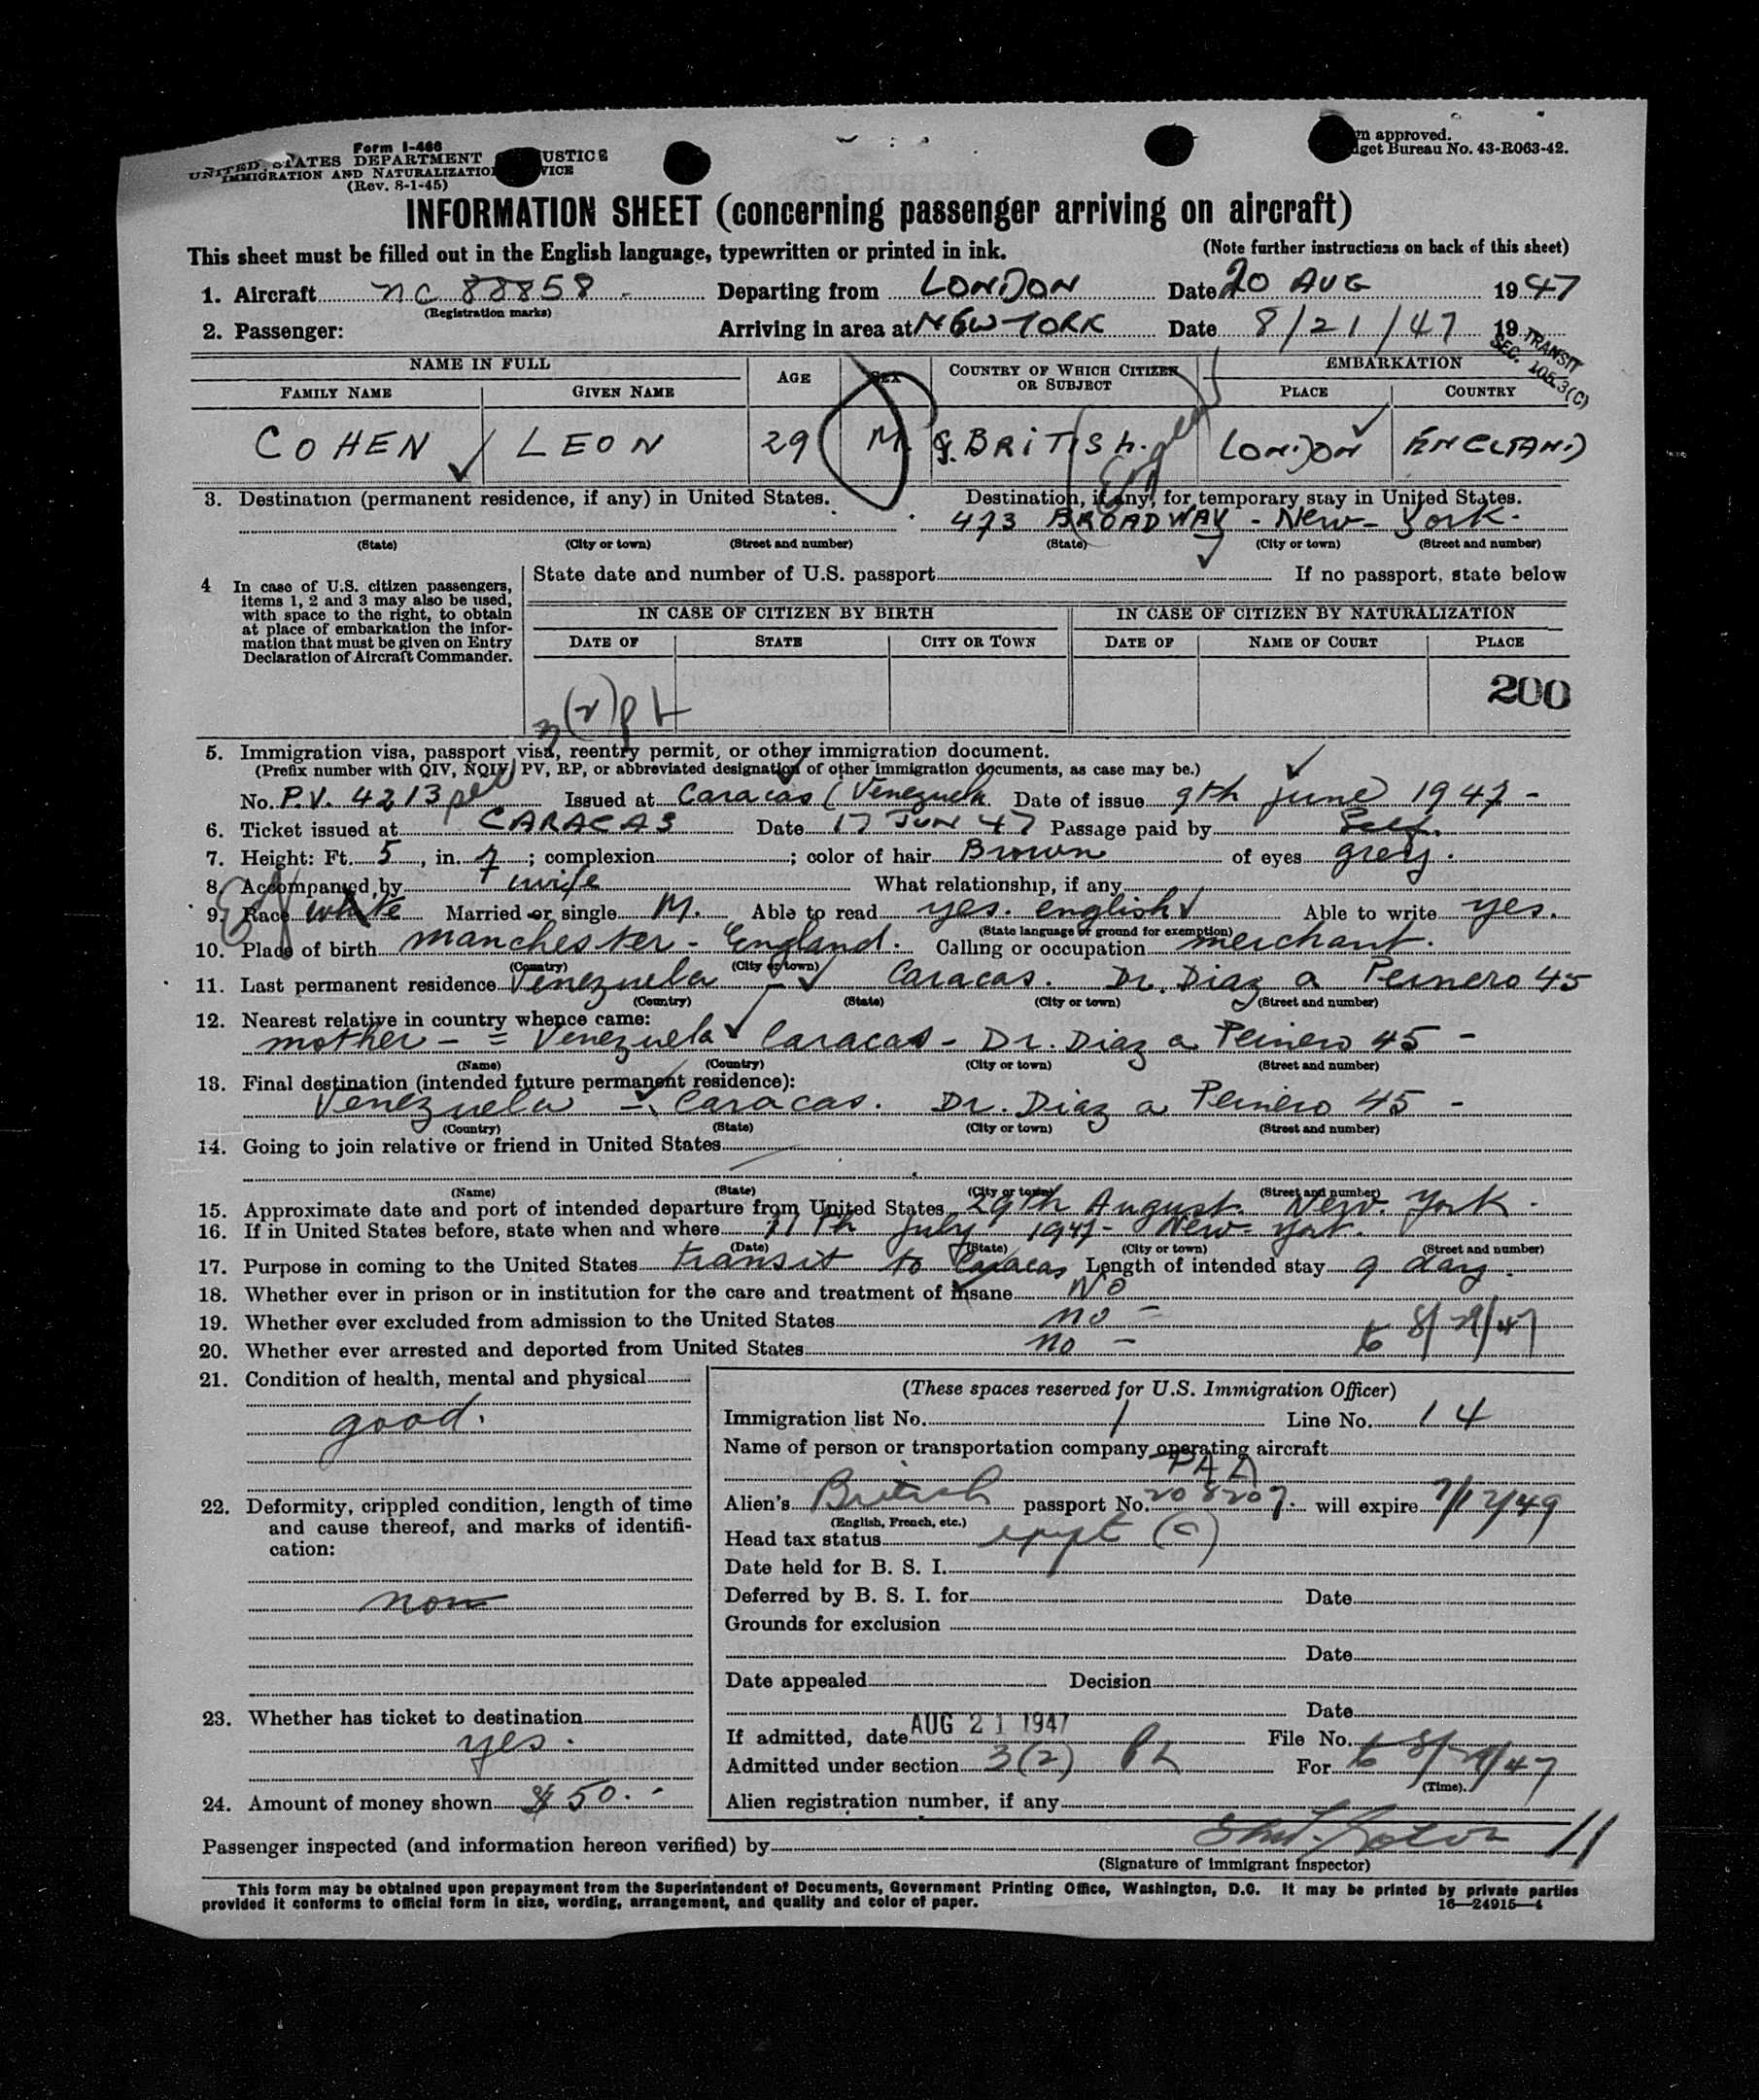 Form I-466
UNITED STATES DEPARTMENT USTICE
IMMIGRATION AND NATURALIZATIO VICE
(Rev. 8-1-45)
m approved.
dget Bureau No. 43-R063-42.
INFORMATION SHEET (concerning passenger arriving on aircraft)
This sheet must be filled out in the English language, typewritten or printed in ink. (Note further instructions on back of this sheet)
1. Aircraft NC 88858 - Departing from LONDON Date 20 AUG 1947
(Registration marks)
2. Passenger: Arriving in area at NEW YORK Date 8/21/47 19
TRANSIT
SEC. 105.3(C)
NAME IN FULL AGE SEX COUNTRY OF WHICH CITIZEN OR SUBJECT EMBARKATION
FAMILY NAME GIVEN NAME PLACE COUNTRY
COHEN LEON 29 M. BRITISH. LONDON ENGLAND
3. Destination (permanent residence, if any) in United States. Destination, if any, for temporary stay in United States.
473 BROADWAY - New-York-
(State) (City or town) (Street and number) (State) (City or town) (Street and number)
4 In case of U.S. citizen passengers, items 1, 2 and 3 may also be used, with space to the right, to obtain at place of embarkation the information that must be given on Entry Declaration of Aircraft Commander.
State date and number of U.S. passport If no passport, state below
IN CASE OF CITIZEN BY BIRTH IN CASE OF CITIZEN BY NATURALIZATION
DATE OF STATE CITY OR TOWN DATE OF NAME OF COURT PLACE
200
3(2)
5. Immigration visa, passport visa, reentry permit, or other immigration document.
(Prefix number with QIV, NQIV, PV, RP, or abbreviated designation of other immigration documents, as case may be.)
No. P.V. 4213 Issued at Caracas (Venezuela Date of issue 9th June 1947 -
6. Ticket issued at CARACAS Date 17 JUN 47 Passage paid by Self.
7. Height: Ft. 5, in. 7; complexion ; color of hair Brown of eyes grey.
8. Accompanied by wife What relationship, if any
9. Race white Married or single M. Able to read yes. english Able to write yes.
(State language or ground for exemption)
10. Place of birth manchester - England. Calling or occupation merchant.
(Country) (City or town)
11. Last permanent residence Venezuela - Caracas. Dr. Diaz a Peinero 45
(Country) (State) (City or town) (Street and number)
12. Nearest relative in country whence came:
mother - = Venezuela Caracas - Dr. Diaz a Peinero 45 -
(Name) (Country) (City or town) (Street and number)
13. Final destination (intended future permanent residence):
Venezuela - Caracas. Dr. Diaz a Peinero 45 -
(Country) (State) (City or town) (Street and number)
14. Going to join relative or friend in United States
(Name) (State) (City or town) (Street and number)
15. Approximate date and port of intended departure from United States 29th August. New. York.
16. If in United States before, state when and where 11th July 1947- New-York.
(Date) (State) (City or town) (Street and number)
17. Purpose in coming to the United States transit to Caracas Length of intended stay 9 days.
18. Whether ever in prison or in institution for the care and treatment of insane No
19. Whether ever excluded from admission to the United States no -
20. Whether ever arrested and deported from United States no - to 8/29/47
21. Condition of health, mental and physical
good.
22. Deformity, crippled condition, length of time and cause thereof, and marks of identification:
non
23. Whether has ticket to destination
yes.
24. Amount of money shown $50.-
(These spaces reserved for U.S. Immigration Officer)
Immigration list No. 1 Line No. 14
Name of person or transportation company operating aircraft
PAA
Alien's British passport No. 208207. will expire 7/17/49
(English, French, etc.)
Head tax status (c)
Date held for B. S. I.
Deferred by B. S. I. for Date
Grounds for exclusion
Date
Date appealed Decision
Date
If admitted, date AUG 21 1947 File No.
Admitted under section 3(2) For to 8/29/47
(Time).
Alien registration number, if any
Passenger inspected (and information hereon verified) by
(Signature of immigrant inspector)
This form may be obtained upon prepayment from the Superintendent of Documents, Government Printing Office, Washington, D.C. It may be printed by private parties
provided it conforms to official form in size, wording, arrangement, and quality and color of paper. 16—24915-4